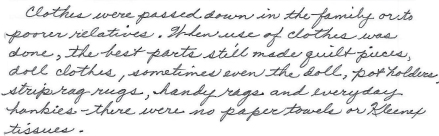 Clothes were passed down in the family or to
poorer relatives. When use of clothes was
done, the best parts still made quilt pieces,
doll clothes, sometimes even the doll, pot holders,
strip rag rugs, handy rags and everyday
hankies - there were no paper towels or Kleenex
tissues.